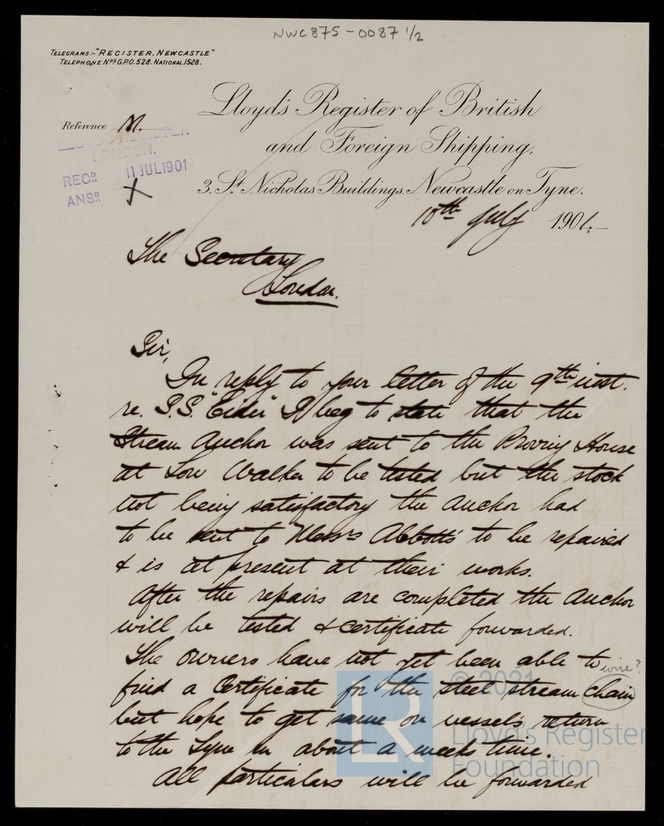 NWC875-0087 1/2
TELEGRAMS:-"REGISTER, NEWCASTLE"
TELEPHONE NOS G.P.O. 528. NATIONAL 1528.
Lloyd's Register of British
and Foreign Shipping.
Reference M.
LLOYD'S REGISTER
LONDON.
RECD 11 JUL 1901
ANSD X
3, St Nicholas Buildings, Newcastle on Tyne.
10th July 1901.
The Secretary
London.
Sir,
In reply to your letter of the 9th inst.
re. S.S. "Eider" I beg to state that the
Stream Anchor was sent to the Proving House
at Low Walker to be tested but the stock
not being satisfactory the Anchor had
to be sent to Messrs Abbotts to be repaired
& is at present at their works.
After the repairs are completed the Anchor
will be tested & certificate forwarded.
The owners have not yet been able to
wire?
find a Certificate for the steel stream chain
but hope to get same on vessels return
to the Tyne in about a weeks time.
All particulars will be forwarded
© 2021
LR
Lloyd's Register
Foundation